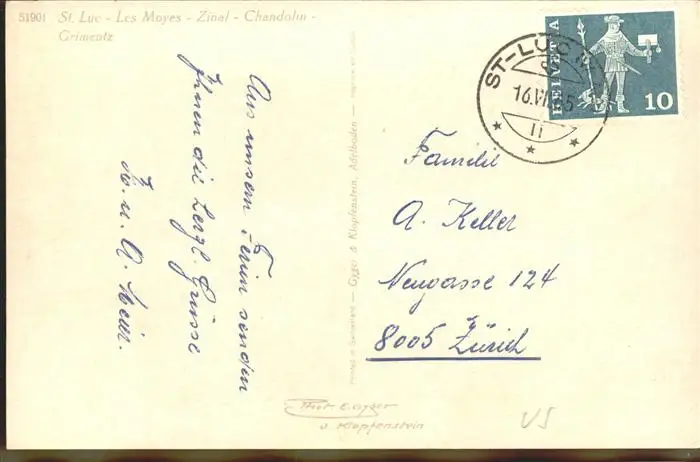 51901 St. Luc - Les Moyes - Zinal - Chandolin -
Grimentz
Aus unsern Ferien senden
Ihnen die herzl. Grüsse
u. A. Meier.
Printed in Switzerland — Gyger & Klopfenstein, Adelboden —
ST-LUC
16.VII.65
11
HELVETIA
10
Familie
A. Keller
Neugasse 124
8005 Zürich
Phot E. Gyger
u Klopfenstein
VS